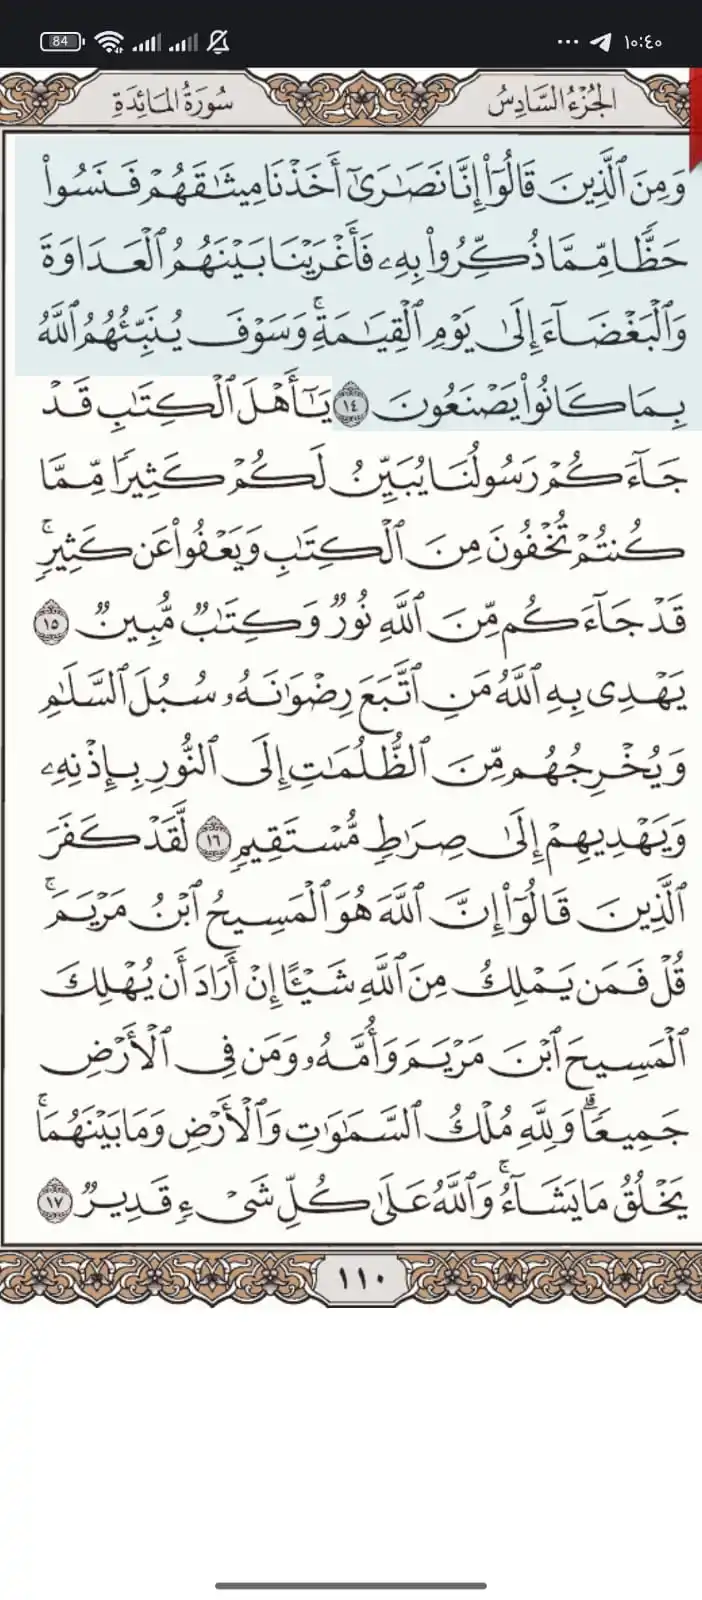 84 ١٠:٤٠
الجُزْءُ السَّادِسُ سُورَةُ المَائِدَةِ
وَمِنَ ٱلَّذِينَ قَالُوٓاْ إِنَّا نَصَٰرَىٰٓ أَخَذْنَا مِيثَٰقَهُمْ فَنَسُواْ
حَظًّا مِّمَّا ذُكِّرُواْ بِهِۦ فَأَغْرَيْنَا بَيْنَهُمُ ٱلْعَدَاوَةَ
وَٱلْبَغْضَآءَ إِلَىٰ يَوْمِ ٱلْقِيَٰمَةِۚ وَسَوْفَ يُنَبِّئُهُمُ ٱللَّهُ
بِمَا كَانُواْ يَصْنَعُونَ ١٤ يَٰٓأَهْلَ ٱلْكِتَٰبِ قَدْ
جَآءَكُمْ رَسُولُنَا يُبَيِّنُ لَكُمْ كَثِيرًا مِّمَّا
كُنتُمْ تُخْفُونَ مِنَ ٱلْكِتَٰبِ وَيَعْفُواْ عَن كَثِيرٍۚ
قَدْ جَآءَكُم مِّنَ ٱللَّهِ نُورٌ وَكِتَٰبٌ مُّبِينٌ ١٥
يَهْدِى بِهِ ٱللَّهُ مَنِ ٱتَّبَعَ رِضْوَٰنَهُۥ سُبُلَ ٱلسَّلَٰمِ
وَيُخْرِجُهُم مِّنَ ٱلظُّلُمَٰتِ إِلَى ٱلنُّورِ بِإِذْنِهِۦ
وَيَهْدِيهِمْ إِلَىٰ صِرَٰطٍ مُّسْتَقِيمٍ ١٦ لَّقَدْ كَفَرَ
ٱلَّذِينَ قَالُوٓاْ إِنَّ ٱللَّهَ هُوَ ٱلْمَسِيحُ ٱبْنُ مَرْيَمَۚ
قُلْ فَمَن يَمْلِكُ مِنَ ٱللَّهِ شَيْـًٔا إِنْ أَرَادَ أَن يُهْلِكَ
ٱلْمَسِيحَ ٱبْنَ مَرْيَمَ وَأُمَّهُۥ وَمَن فِى ٱلْأَرْضِ
جَمِيعًاۗ وَلِلَّهِ مُلْكُ ٱلسَّمَٰوَٰتِ وَٱلْأَرْضِ وَمَا بَيْنَهُمَاۚ
يَخْلُقُ مَا يَشَآءُۚ وَٱللَّهُ عَلَىٰ كُلِّ شَىْءٍ قَدِيرٌ ١٧
١١٠